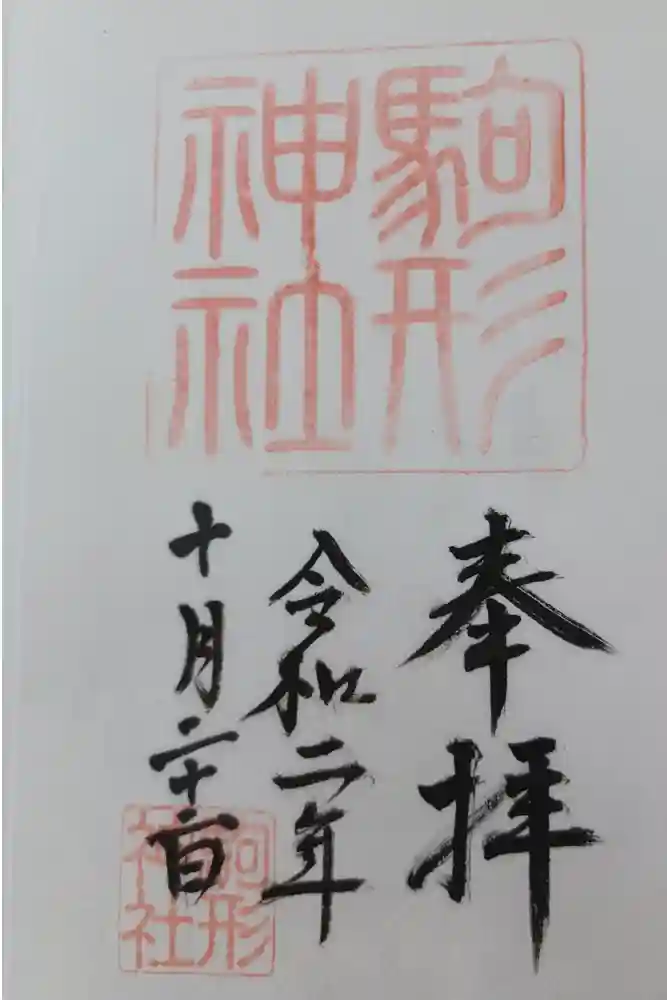 駒形
神社
奉拝
令和二年
十月二十六日
駒形
神社